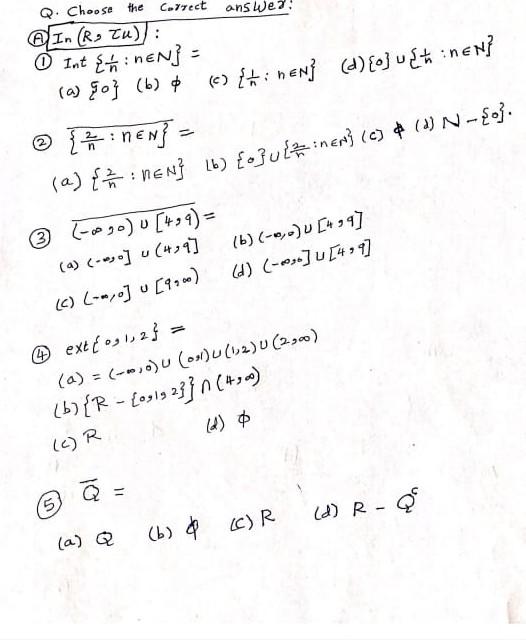 Q. Choose the Correct answer:
Ⓐ In (R, τu) :
① Int {1/n : n∈N} =
(a) {0} (b) ϕ (c) {1/n : n∈N} (d) {0} ∪ {1/n : n∈N}
② \overline{{2/n : n∈N}} =
(a) {2/n : n∈N} (b) {0} ∪ {2/n : n∈N} (c) ϕ (d) N - {0}.
③ \overline{(-∞, 0) ∪ [4, 9)} =
(a) (-∞, 0] ∪ (4, 9] (b) (-∞, 0) ∪ [4, 9]
(c) (-∞, 0] ∪ [9, ∞) (d) (-∞, 0] ∪ [4, 9]
④ ext{0, 1, 2} =
(a) = (-∞, 0) ∪ (0, 1) ∪ (1, 2) ∪ (2, ∞)
(b) {R - {0, 1, 2}} ∩ (4, ∞)
(c) R (d) ϕ
⑤ \overline{Q} =
(a) Q (b) ϕ (c) R (d) R - Qᶜ